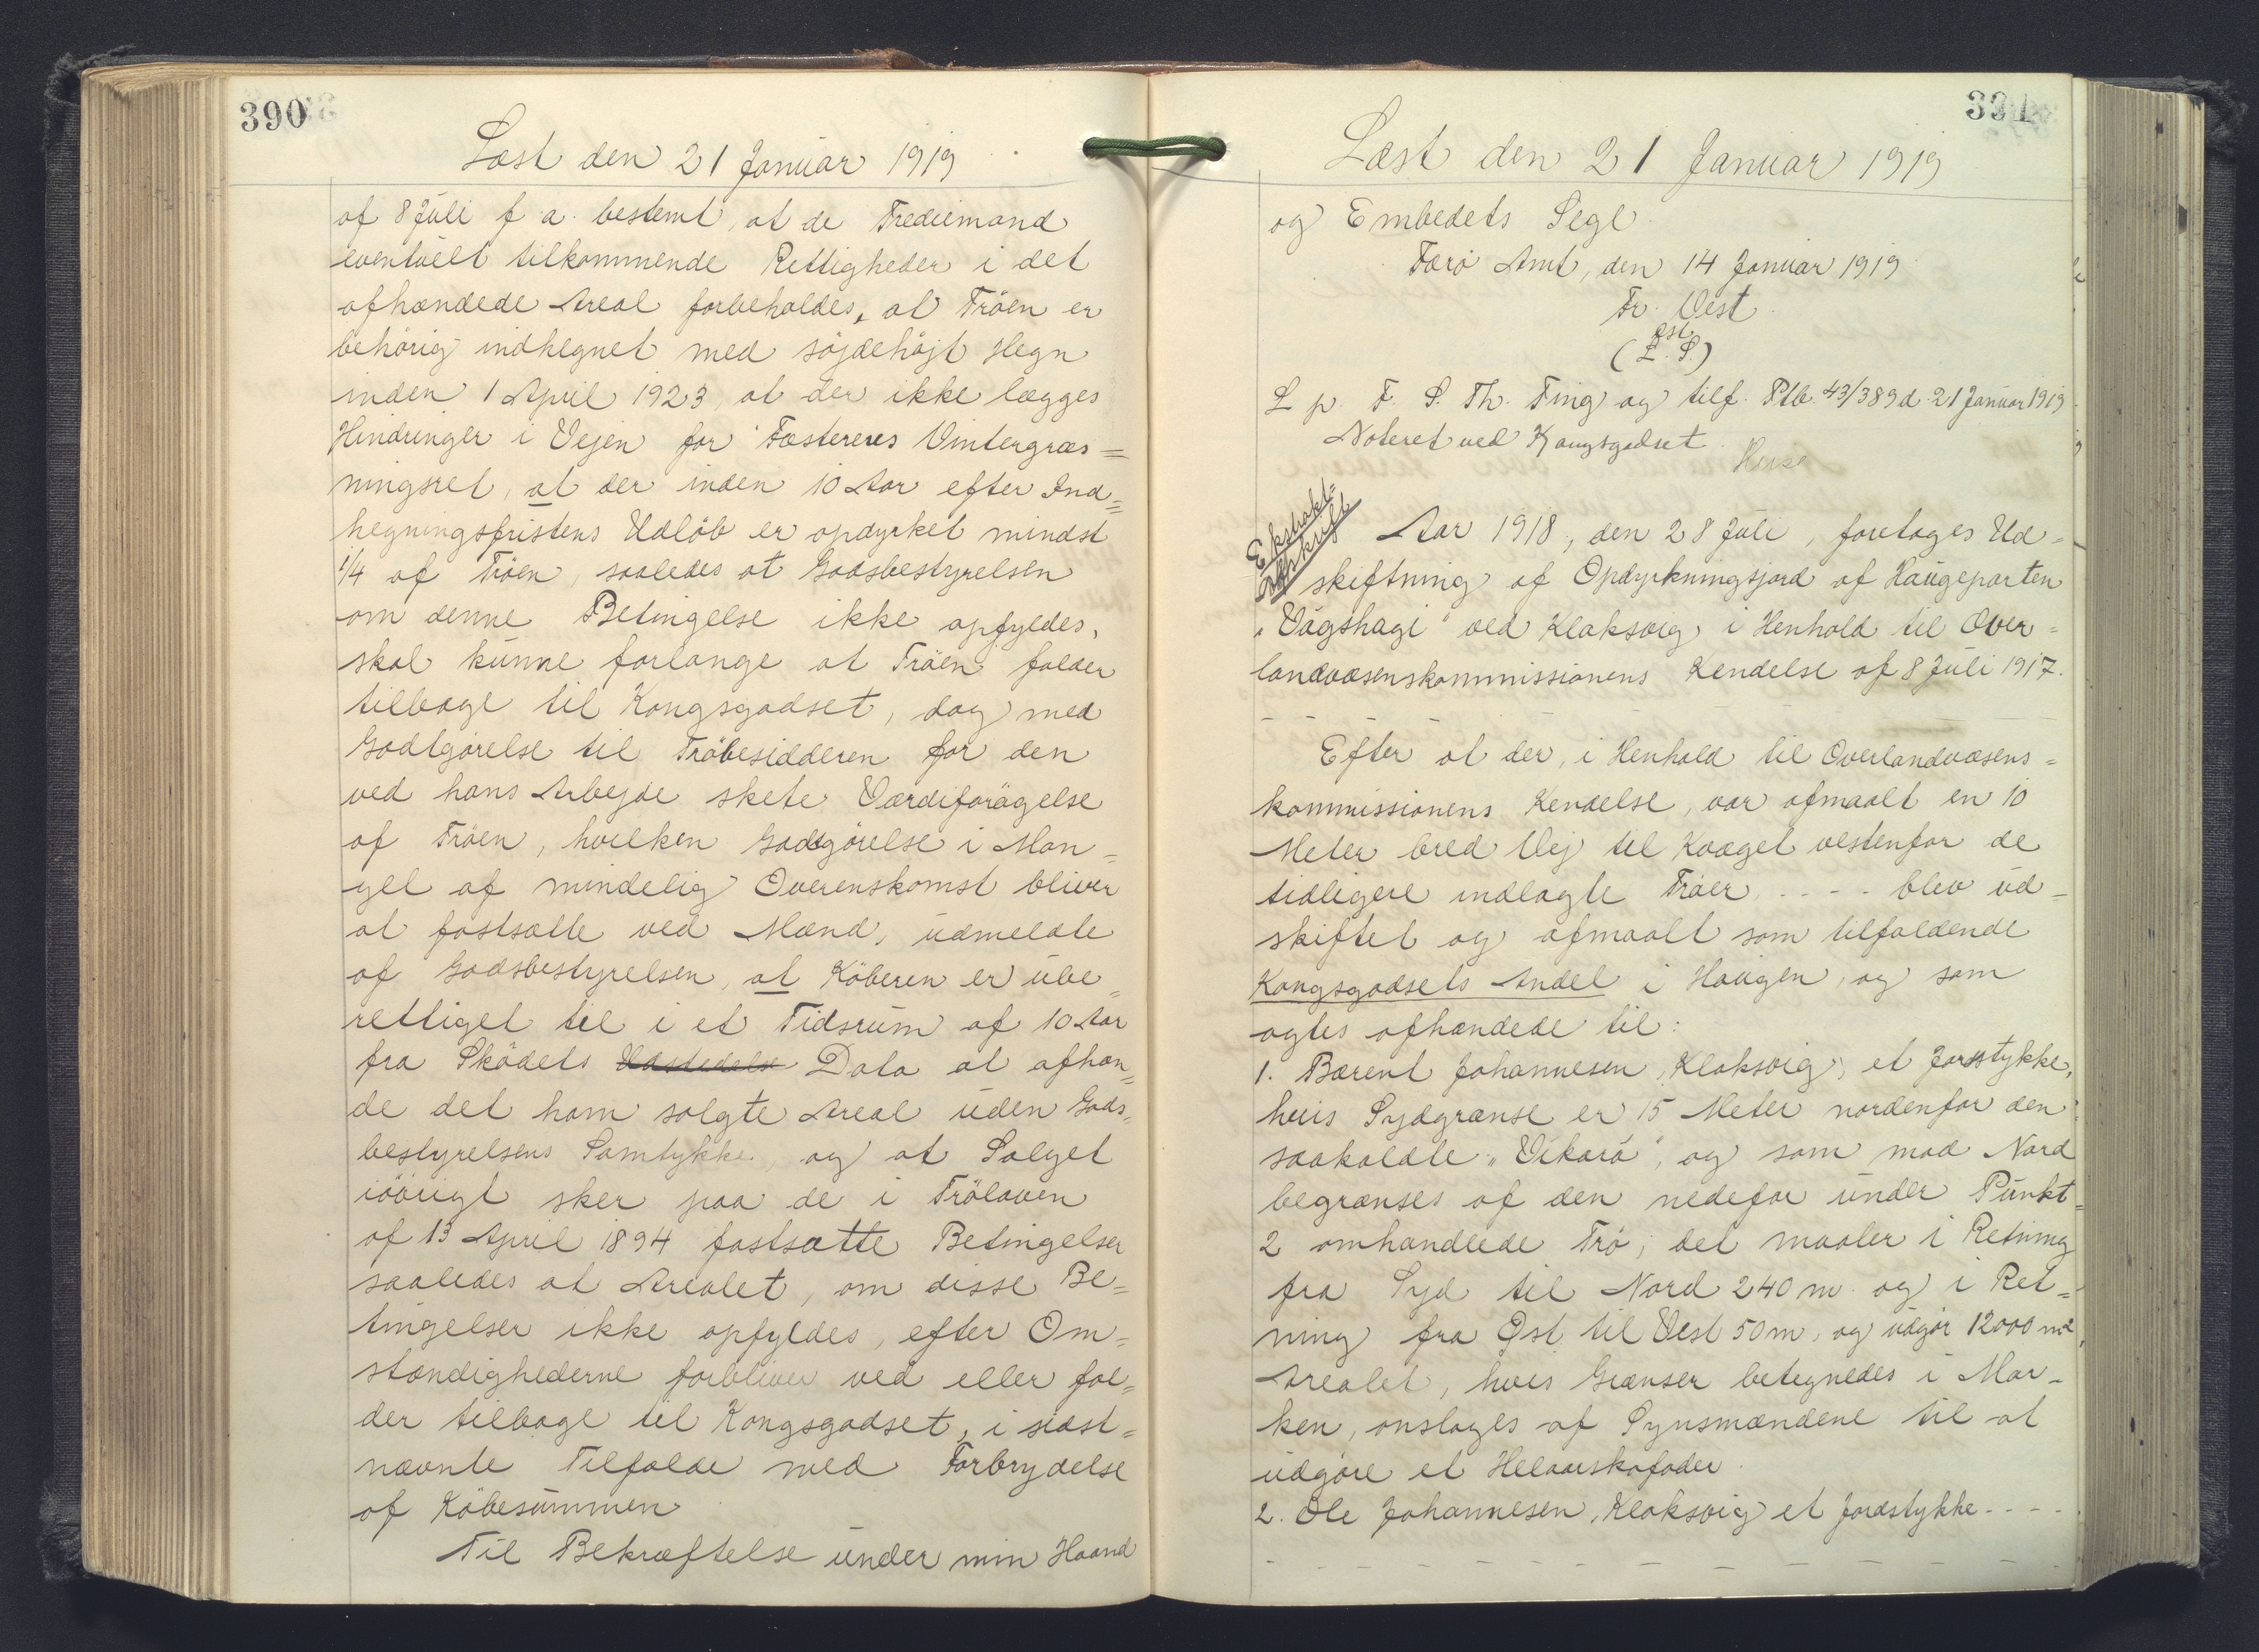 390
Læst den 21 Januar 1919
af 8 Juli f a. bestemt, at de Trediemand
eventuelt tilkommende Rettigheder i det
afhændede Areal forbeholdes, at Tröen er
behörig indhegnet med söjdehöjt Hegn
inden 1 April 1923, at der ikke lægges
Hindringer i Vejen for Fæsterens Vintergræs=
ningsret, at der inden 10 Aar efter Ind=
hegningsfristens Udlöb er opdyrket mindst
1/4 af Tröen, saaledes at Godsbestyrelsen
om denne Betingelse ikke opfyldes,
skal kunne forlange at Tröen falder
tilbage til Kongsgodset, dog med
Godtgörelse til Tröbesidderen for den
ved hans Arbejde skete Værdiforögelse
af Tröen, hvilken Godtgörelse i Man=
gel af mindelig Overenskomst bliver
at fastsætte ved Mænd, udmeldte
af Godsbestyrelsen, at Köberen er ube=
rettiget til i et Tidsrum af 10 Aar
fra Sködets Udstedelse Dato at afhæn=
de det ham solgte Areal uden Gods=
bestyrelsens Samtykke, og at Salget
iövrigt sker paa de i Trölaven
af 13 April 1894 fastsatte Betingelser
saaledes at Arealet, om disse Be=
tingelser ikke opfyldes, efter Om=
stændighederne forbliver ved eller fal=
der tilbage til Kongsgodset, i sidst=
nævnte Tilfælde med Forbrydelse
af Köbesummen
Til Bekræftelse under min Haand
391
Læst den 21 Januar 1919
og Embedets Segl
Færö Amt, den 14 Januar 1919
Fr. Vest
cst.
(L. S.)
L p. F. S. Th. Ting og tilf. Ptb. 43/389 d. 21 Januar 1919
Noteret ved Kongsgodset.
Ekstrakt=
Afskrift
Aar 1918, den 28 Juli, foretages Ud=
skiftning af Opdyrkningsjord af Haugeparten
"Vágshagi" ved Klaksvig i Henhold til Over=
landvæsenskommissionens Kendelse af 8 Juli 1917.
Efter at der, i Henhold til Overlandvæsens=
kommissionens Kendelse, var afmaalt en 10
Meter bred Vej til Kvæget vestenfor de
tidligere indlagte Tröer, - - - - blev ud=
skiftet og afmaalt som tilfaldende
Kongsgodsets Andel i Haugen, og som
agtes afhændede til:
1. Bærent Johannesen, Klaksvig, et Jordstykke,
hvis Sydgrænse er 15 Meter nordenfor den
saakaldte "Vikará", og som mod Nord
begrænses af den nedefor under Punkt
2 omhandlede Trö; det maaler i Retning
fra Syd til Nord 240 m. og i Ret=
ning fra Øst til Vest 50 m, og udgör 12000 m²,
Arealet, hvis Grænser betegnedes i Mar=
ken, anslages af Synsmændene til at
udgöre et Helaarskofoder.
2. Ole Johannesen, Klaksvig et Jordstykke - - - -